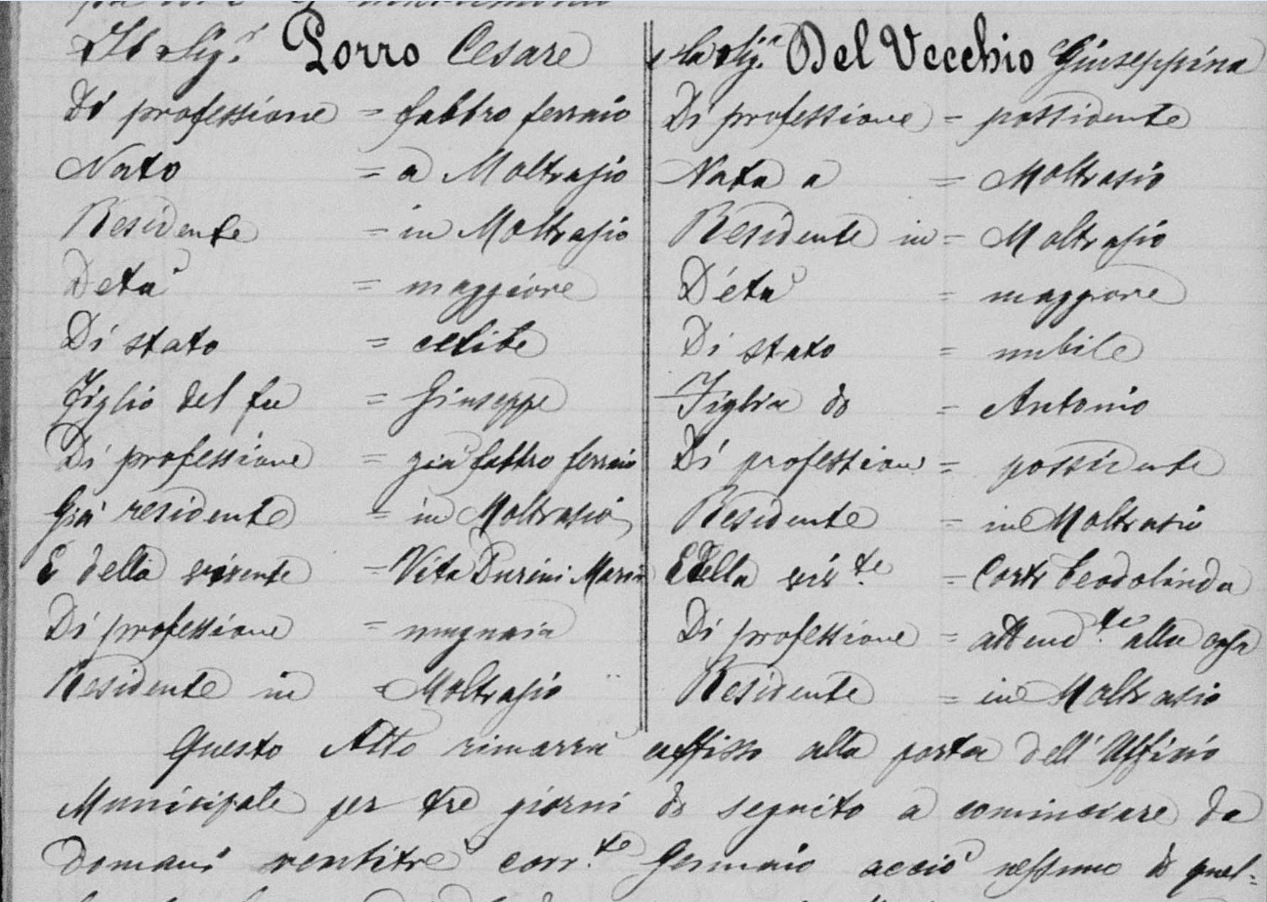 Il Sig.r Porro Cesare
Di professione = fabbro ferraio
Nato = a Moltrasio
Residente = in Moltrasio
D'età = maggiore
Di stato = celibe
Figlio del fu = Giuseppe
Di professione = già fabbro ferraio
Già residente = in Moltrasio
E della vivente = Vita Durini Maria
Di professione = mugnaia
Residente in = Moltrasio
e la Sig.a Del Vecchio Giuseppina
Di professione = possidente
Nata a = Moltrasio
Residente in = Moltrasio
D'età = maggiore
Di stato = nubile
Figlia di = Antonio
Di professione = possidente
Residente = in Moltrasio
E della viv.te = Corti Teodolinda
Di professione = attend.te alla casa
Residente = in Moltrasio
Questo Atto rimarrà affisso alla porta dell'Uffizio
Municipale per tre giorni di seguito a cominciare da
domani ventitrè corr.te Gennaio acciò nessuno di quel=